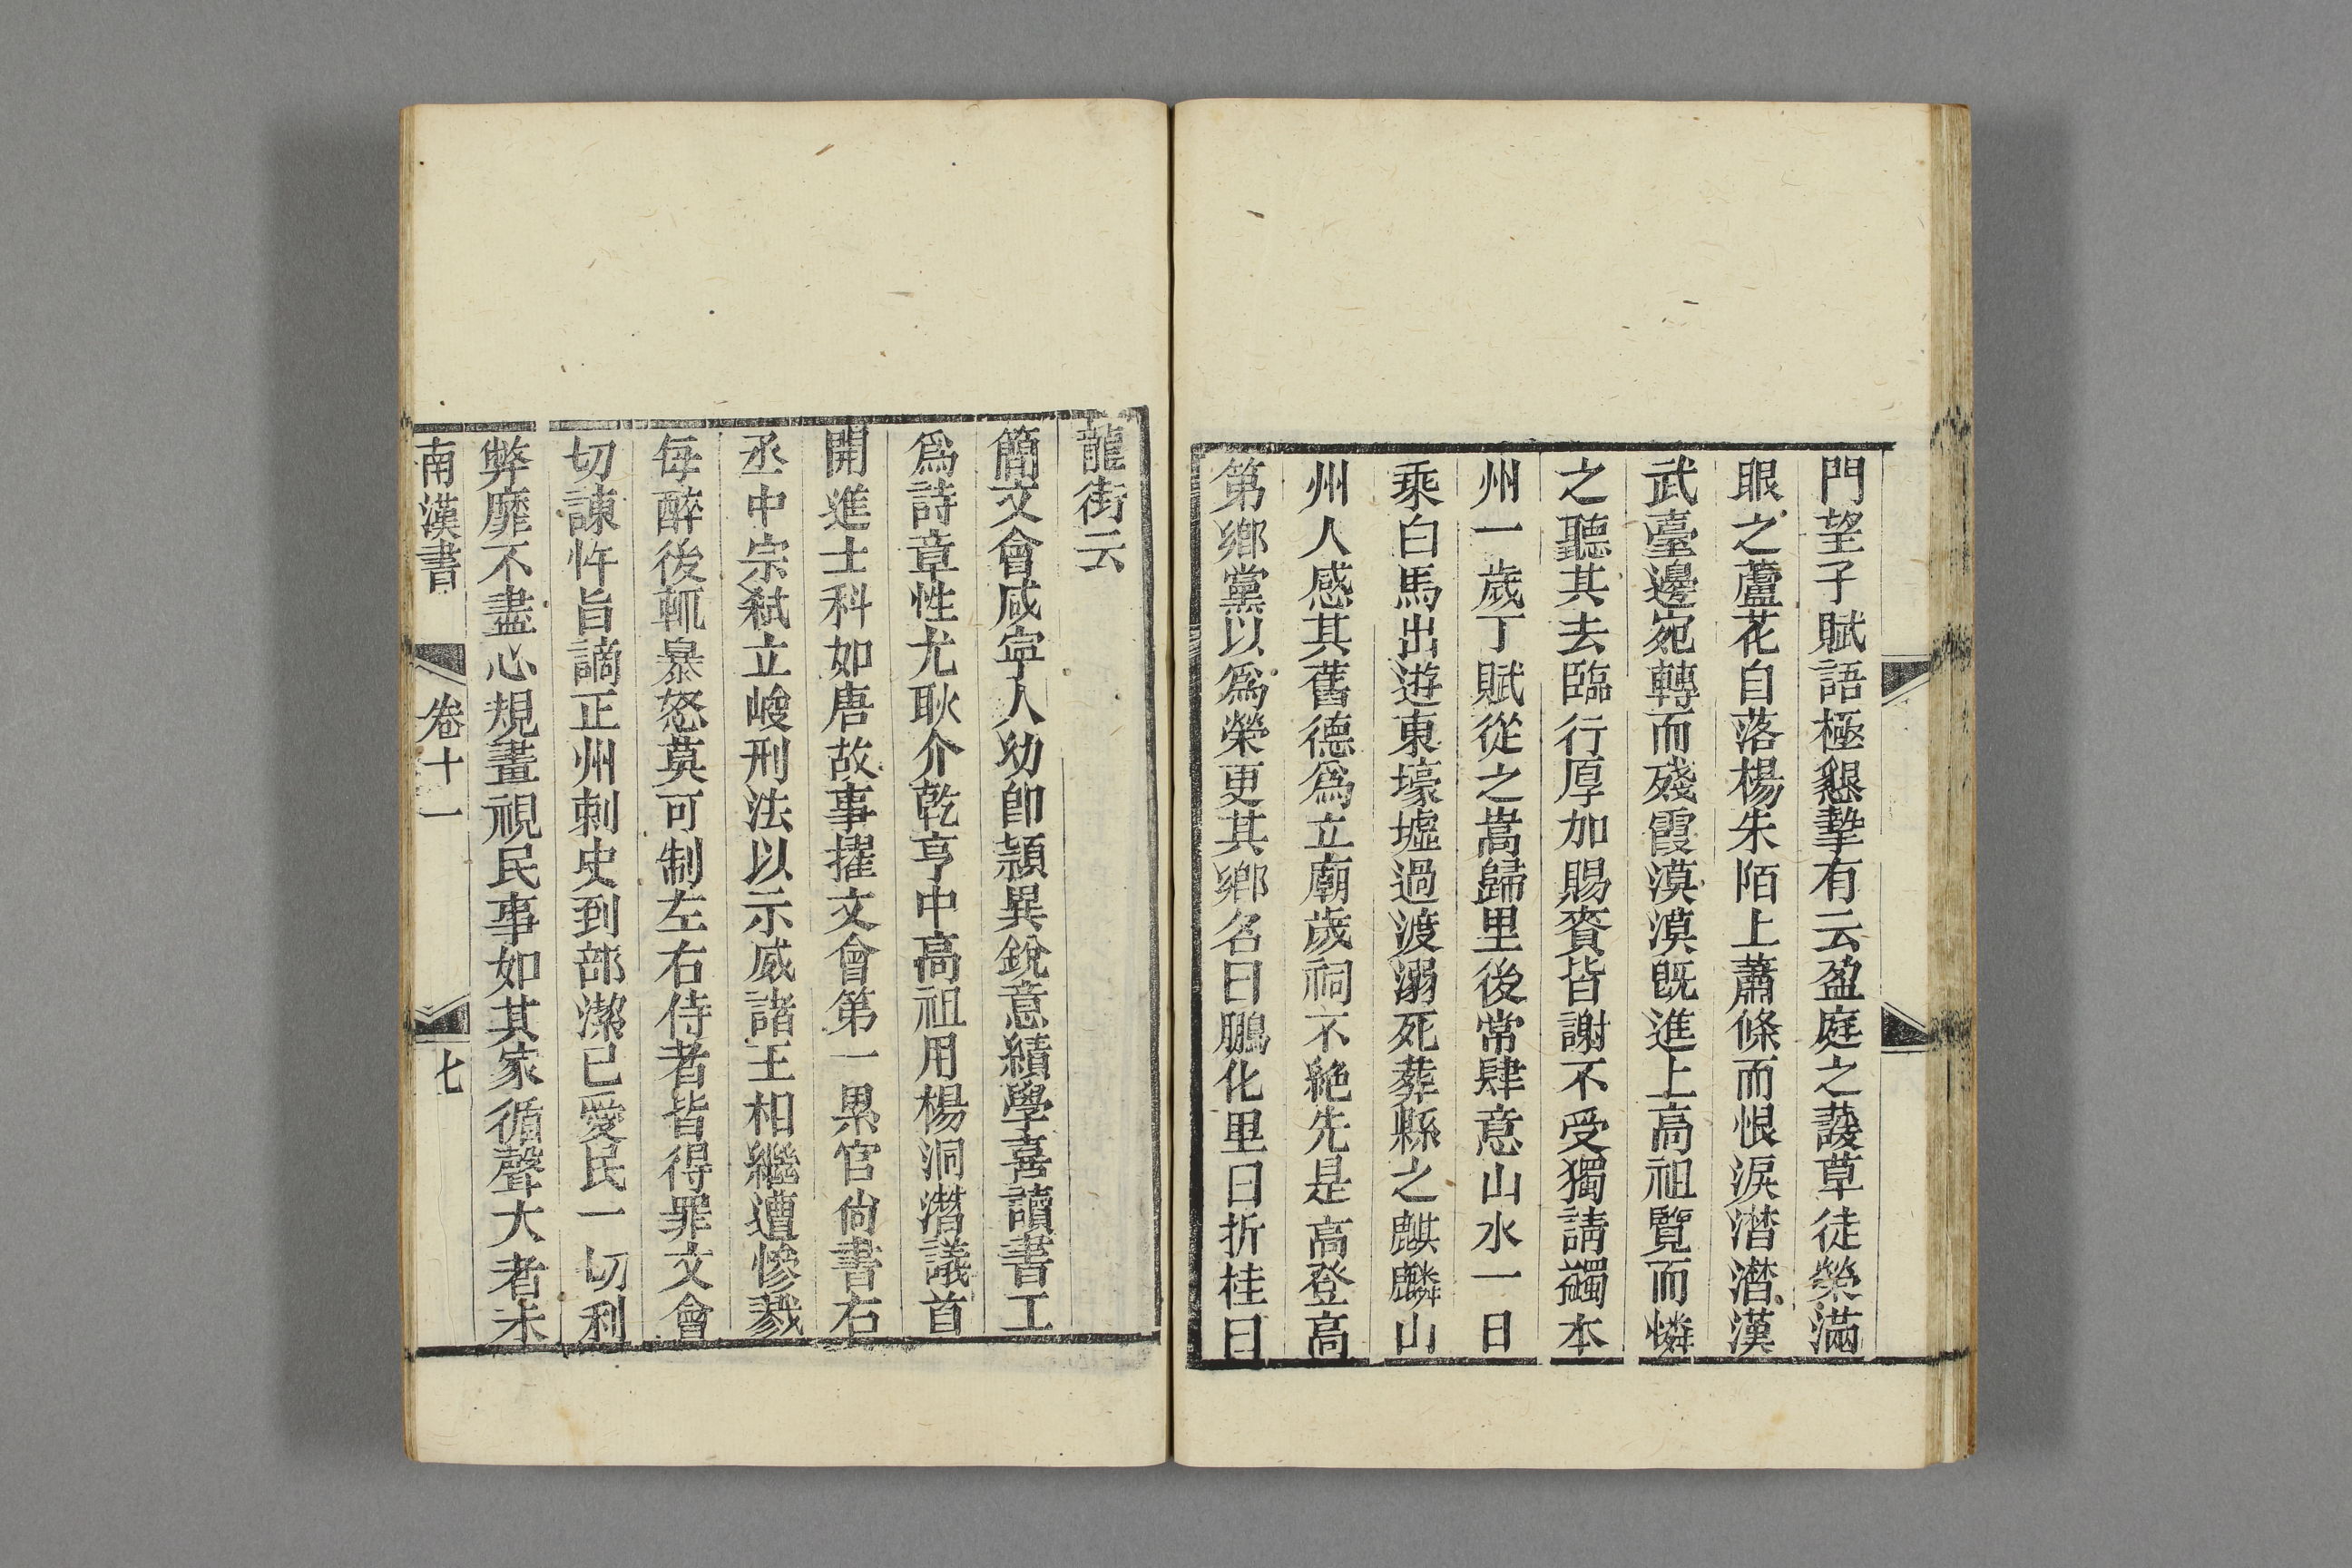 門望子賦語極懇摯有云盈庭之諼草徒榮滿
眼之蘆花自落楊朱陌上蕭條而恨淚潸潸漢
武臺邊宛轉而殘霞漠漠旣進上高祖覽而憐
之聽其去臨行厚加賜賚皆謝不受獨請蠲本
州一歲丁賦從之嵩歸里後常肆意山水一日
乘白馬出遊東壕墟過渡溺死葬縣之麒麟山
州人感其舊德爲立廟歲祠不絶先是高登高
第鄉黨以爲榮更其鄉名曰鵬化里曰折桂曰
龍街云
簡文會咸寧人幼卽頴異銳意績學喜讀書工
爲詩章性尤耿介乾亨中高祖用楊洞潛議首
開進士科如唐故事擢文會第一累官尙書右
丞中宗弑立峻刑法以示威諸王相繼遭慘戮
每醉後輒暴怒莫可制左右侍者皆得罪文會
切諫忤旨謫正州刺史到部潔已愛民一切利
弊靡不盡心規畫視民事如其家循聲大者未
南漢書 卷十一 七